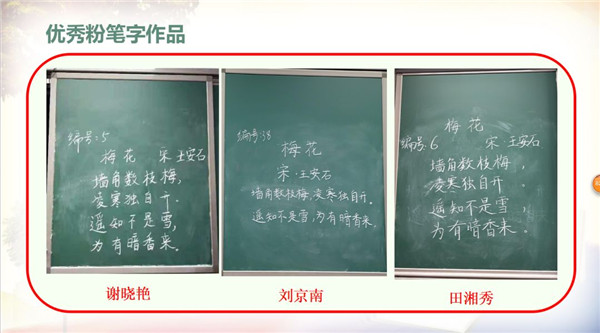 优秀粉笔字作品
编号:5
梅花 宋 王安石
墙角数枝梅,
凌寒独自开.
遥知不是雪,
为有暗香来.
谢晓艳
编号:38
梅花
宋·王安石
墙角数枝梅,凌寒独自开.
遥知不是雪,为有暗香来.
刘京南
梅花
编号:6 宋·王安石
墙角数枝梅,
凌寒独自开.
遥知不是雪,
为有暗香来.
田湘秀